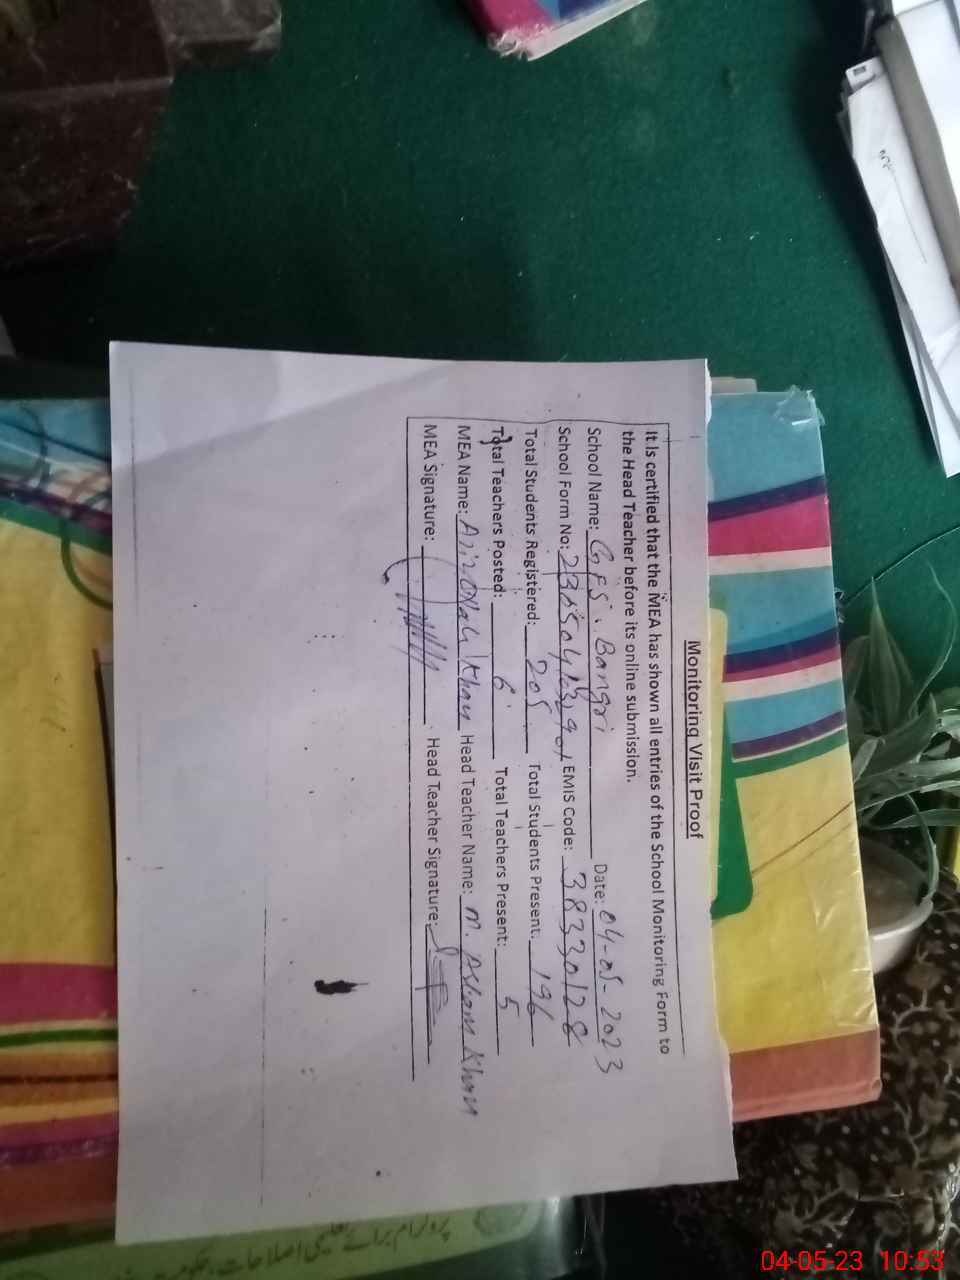 Monitoring Visit Proof
It Is certified that the MEA has shown all entries of the School Monitoring Form to
the Head Teacher before its online submission.
School Name: Bangri Date: 04-05-2023
School Form No: EMIS Code: 38330128
Total Students Registered: 205 Total Students Present: 196
Total Teachers Posted: 6 Total Teachers Present: 5
MEA Name: Khan Head Teacher Name: M. Aslam Khan
MEA Signature: Head Teacher Signature:
04-05-23 10:53